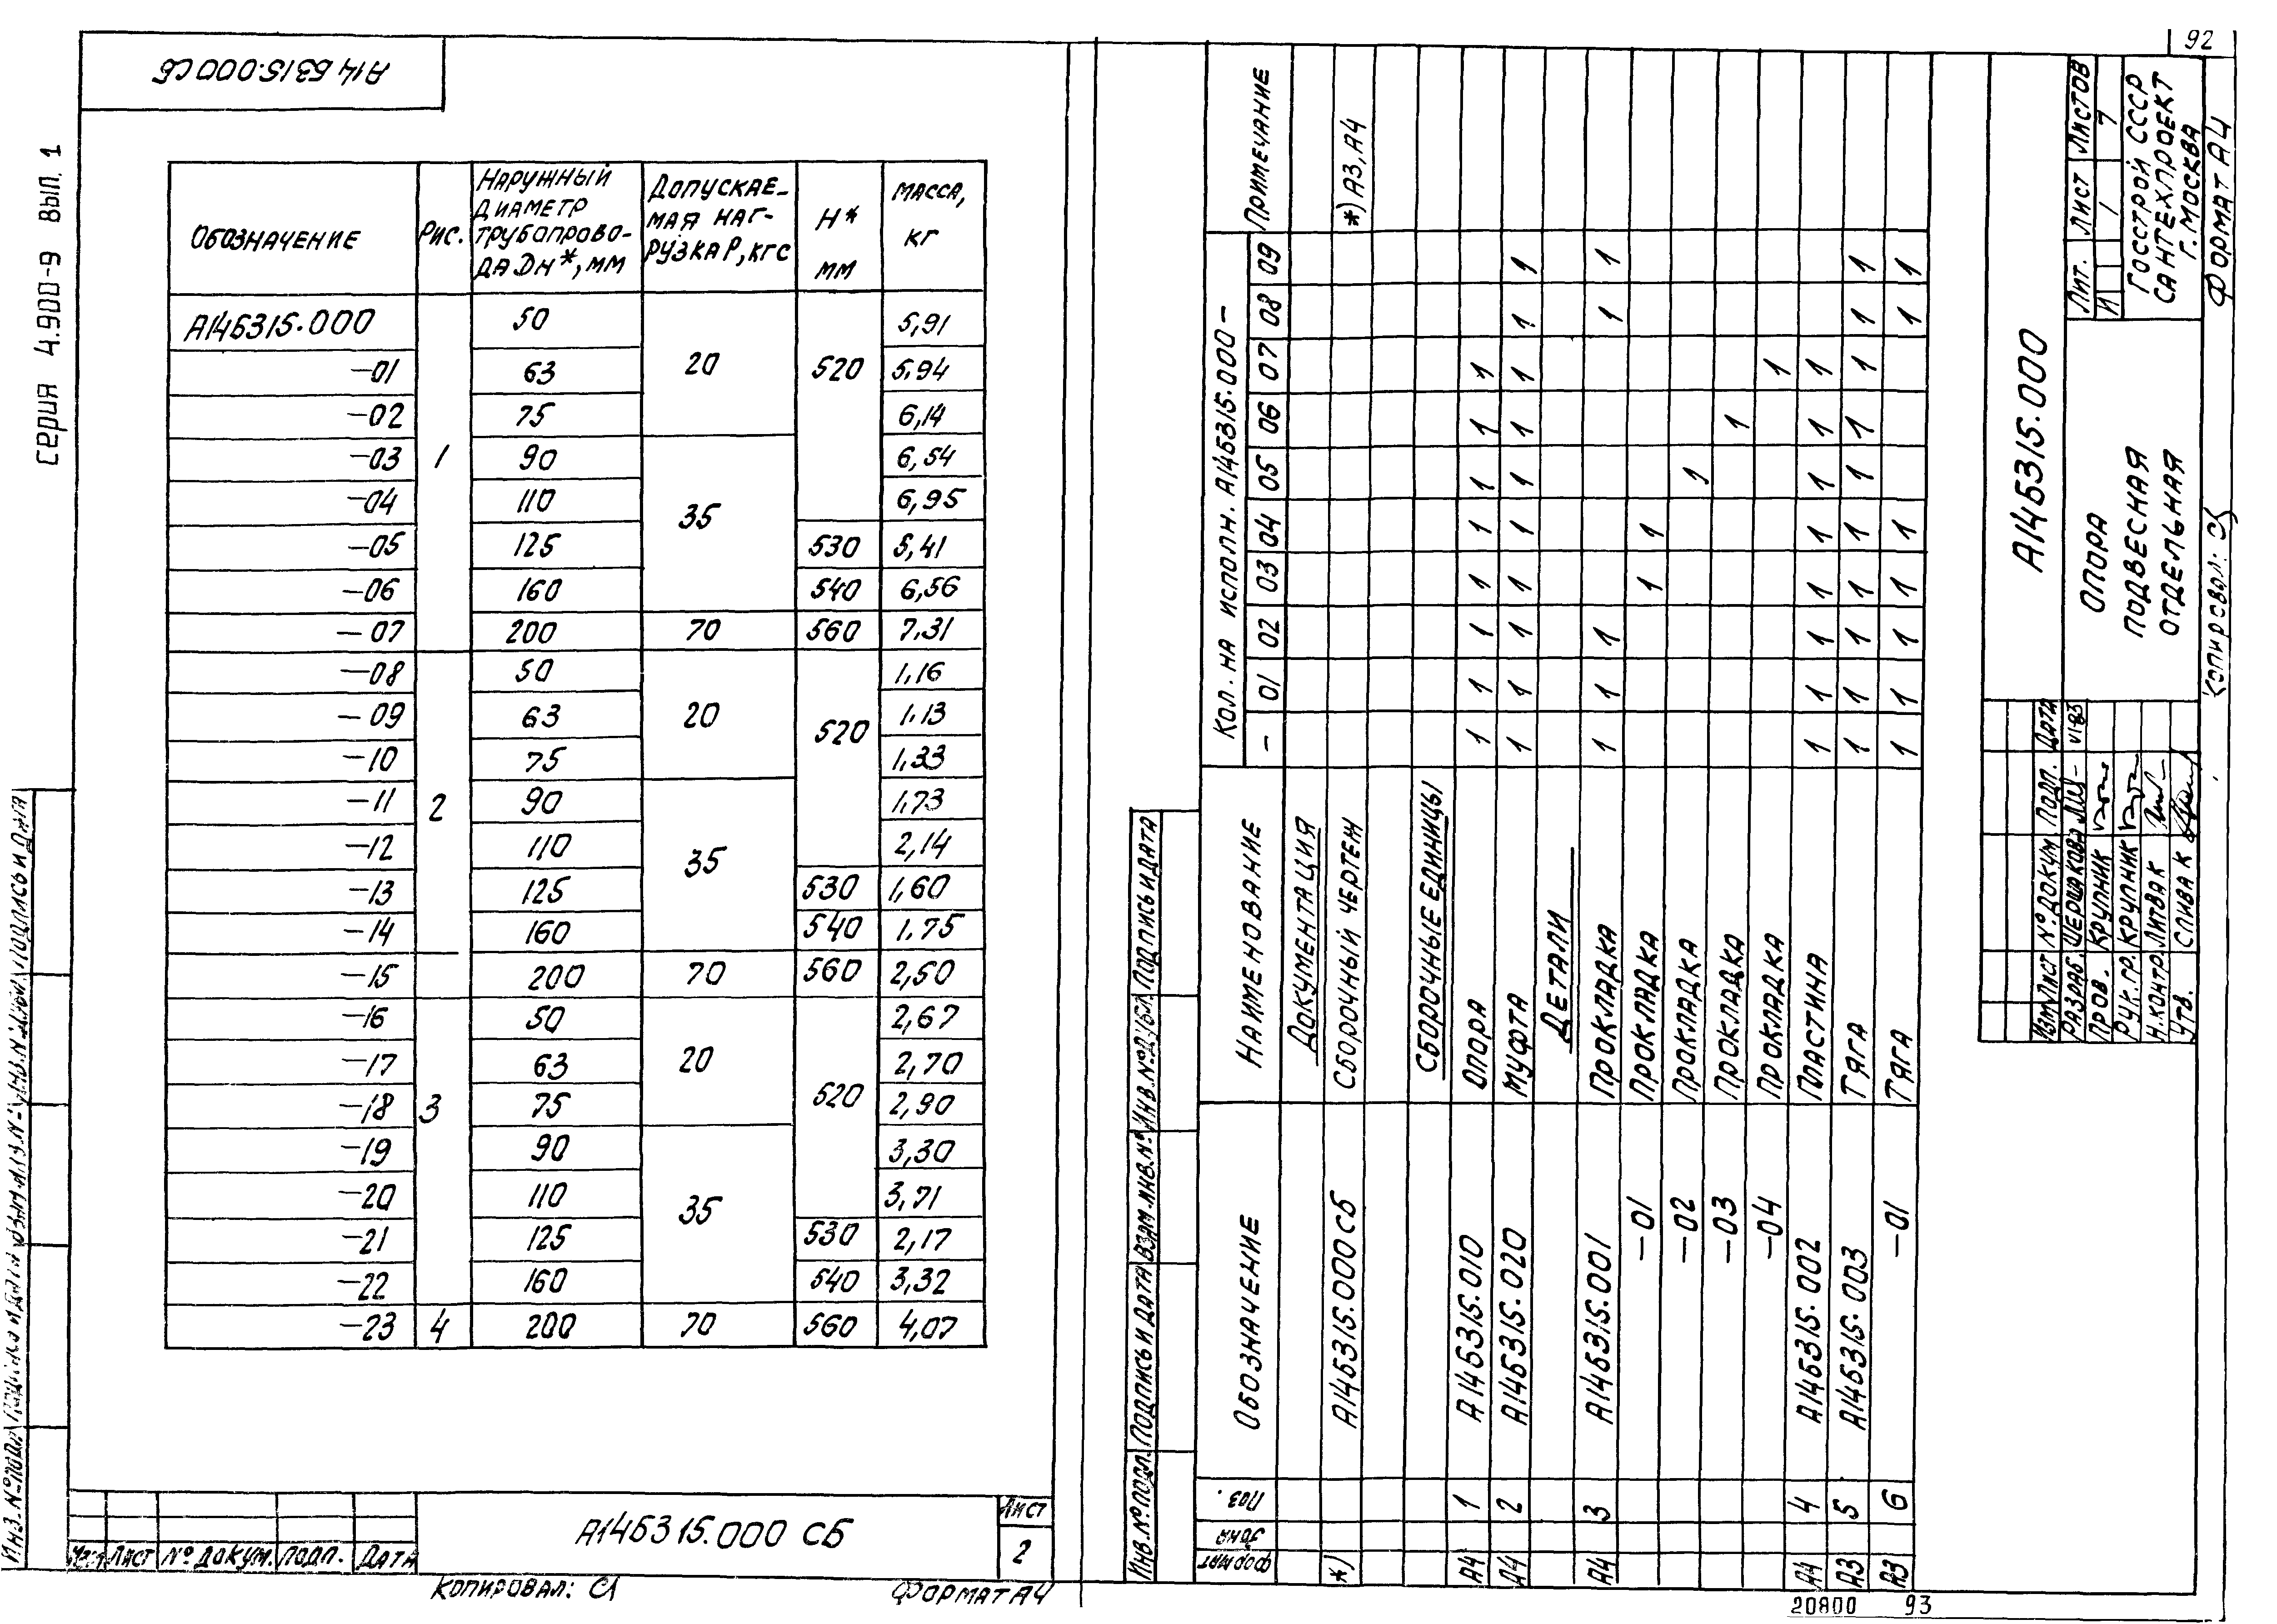 92
Серия 4.900-9 вып. 1
А14Б315.000 СБ
Обозначение | Рис. | Наружный диаметр трубопрово-да Dн*, мм | Допускае-мая наг-рузка Р, кгс | Н* мм | Масса, кг
А14Б315.000 | 1 | 50 | 20 | 520 | 5,91
-01 | 63 | 5,94
-02 | 75 | 6,14
-03 | 90 | 35 | 6,54
-04 | 110 | 6,95
-05 | 125 | 530 | 5,41
-06 | 160 | 540 | 6,56
-07 | 200 | 70 | 560 | 7,31
-08 | 2 | 50 | 20 | 520 | 1,16
-09 | 63 | 1,13
-10 | 75 | 1,33
-11 | 90 | 35 | 1,73
-12 | 110 | 2,14
-13 | 125 | 530 | 1,60
-14 | 160 | 540 | 1,75
-15 | 200 | 70 | 560 | 2,50
-16 | 3 | 50 | 20 | 520 | 2,67
-17 | 63 | 2,70
-18 | 75 | 2,90
-19 | 90 | 35 | 3,30
-20 | 110 | 3,71
-21 | 125 | 530 | 2,17
-22 | 160 | 540 | 3,32
-23 | 4 | 200 | 70 | 560 | 4,07
Изм Лист № докум. Подп. Дата
А14Б315.000 СБ
Лист
2
Копировал:
Формат А4
Формат | Зона | Поз. | Обозначение | Наименование | Кол. на исполн. А14Б315.000 - | Примечание
- | 01 | 02 | 03 | 04 | 05 | 06 | 07 | 08 | 09
Документация
*) | А14Б315.000 СБ | Сборочный чертеж | *) А3, А4
Сборочные единицы
А4 | 1 | А14Б315.010 | Опора | 1 | 1 | 1 | 1 | 1 | 1 | 1 | 1
А4 | 2 | А14Б315.020 | Муфта | 1 | 1 | 1 | 1 | 1 | 1 | 1 | 1 | 1 | 1
Детали
А4 | 3 | А14Б315.001 | Прокладка | 1 | 1 | 1 | 1 | 1
-01 | Прокладка | 1 | 1
-02 | Прокладка | 1
-03 | Прокладка | 1
-04 | Прокладка | 1
А4 | 4 | А14Б315.002 | Пластина | 1 | 1 | 1 | 1 | 1 | 1 | 1 | 1
А3 | 5 | А14Б315.003 | Тяга | 1 | 1 | 1 | 1 | 1 | 1 | 1 | 1 | 1 | 1
А3 | 6 | -01 | Тяга | 1 | 1 | 1 | 1 | 1 | 1 | 1
Инв. № подл. | Подпись и дата | Взам. инв. № | Инв. № дубл. | Подпись и дата
А14Б315.000
Изм Лист № докум. Подп. Дата
Разраб. Шершакова VI-83
Пров. Крупник
Рук. гр. Крупник
Н. контр. Литвак
Утв. Спивак
Опора
подвесная
отдельная
Лит. Лист Листов
И 1 7
Госстрой СССР
Сантехпроект
г. Москва
Копировал:
Формат А4
20800 93